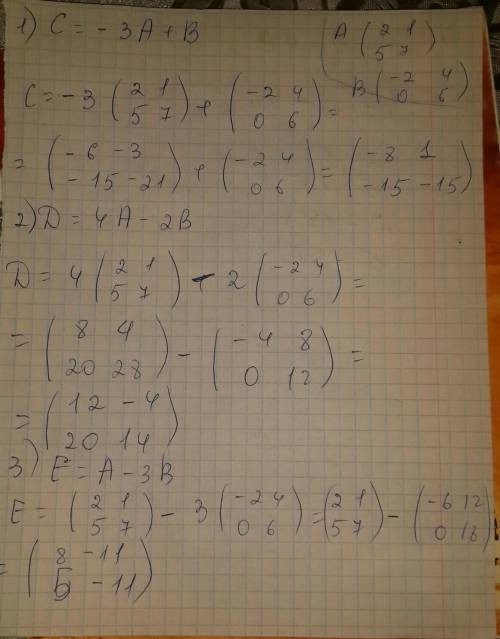 1) C = - 3A + B
A ( 2 1
5 7 )
B ( -2 4
0 6 )
C = - 3 ( 2 1
5 7 ) + ( -2 4
0 6 ) =
= ( -6 -3
-15 -21 ) + ( -2 4
0 6 ) = ( -8 1
-15 -15 )
2) D = 4A - 2B
D = 4 ( 2 1
5 7 ) - 2 ( -2 4
0 6 ) =
= ( 8 4
20 28 ) - ( -4 8
0 12 ) =
= ( 12 -4
20 14 )
3) E = A - 3B
E = ( 2 1
5 7 ) - 3 ( -2 4
0 6 ) = ( 2 1
5 7 ) - ( -6 12
0 18 )
= ( 8 -11
5 -11 )